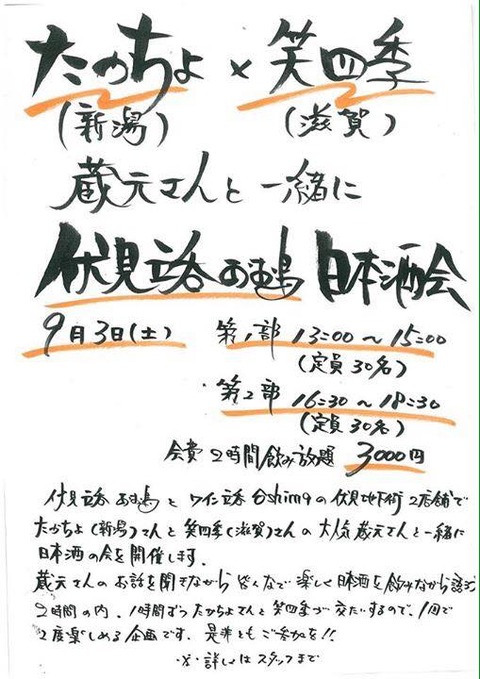 たかちよ × 笑四季
(新潟) (滋賀)
蔵元さんと一緒に
伏見立呑 おお島 日本酒会
9月3日(土) 第1部 13:00〜15:00
(定員30名)
第2部 16:30〜18:30
(定員30名)
会費 2時間飲み放題 3000円
伏見立呑 おお島とワイン立呑 の伏見地下街2店舗で
たかちよ(新潟)さんと笑四季(滋賀)さんの大人気蔵元さんと一緒に
日本酒の会を開催します。
蔵元さんのお話を聞きながら皆んなで楽しく日本酒を飲みながら
2時間の内、1時間ずつたかちよさんと笑四季が交たいするので、1回で
2度楽しめる企画です。是非ともご参加を!!
※詳しくはスタッフまで